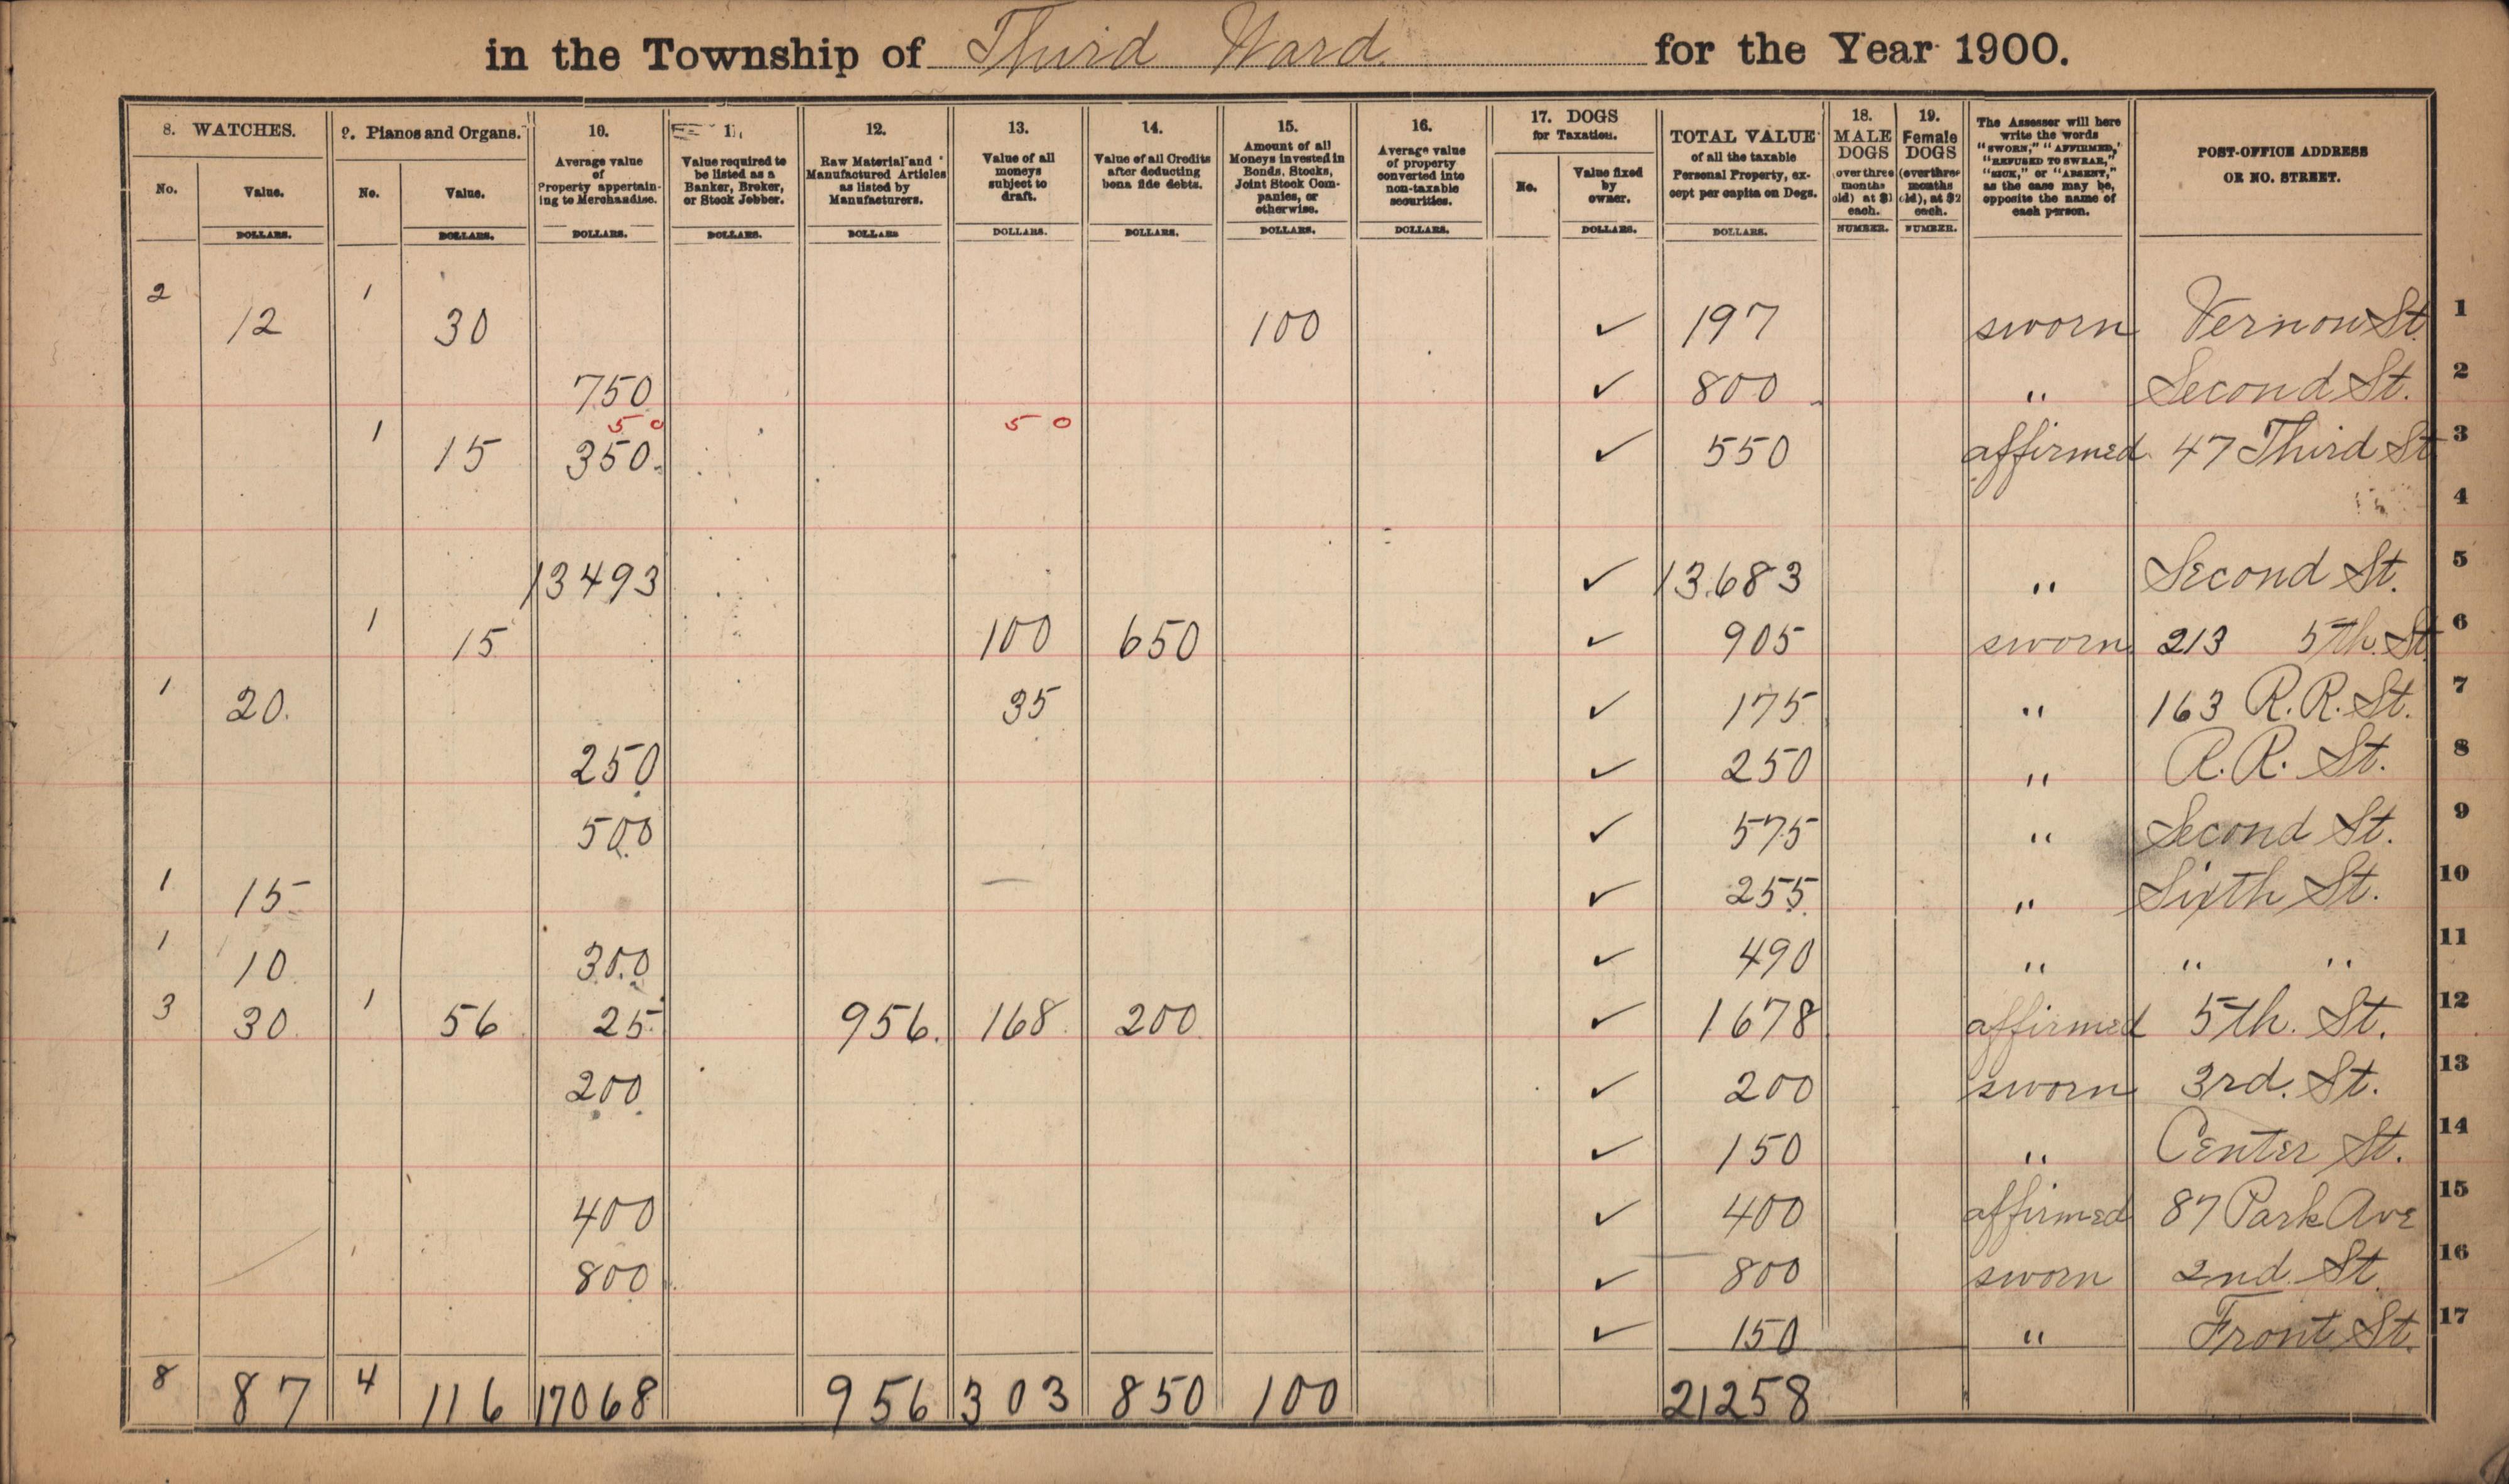 in the Township of Third Ward. for the Year 1900.
8. WATCHES. 9. Pianos and Organs. 10. 11. 12. 13. 14. 15. 16. 17. DOGS for Taxation. TOTAL VALUE of all the taxable Personal Property, except per capita on Dogs. 18. MALE DOGS over three months old) at $1 each. 19. Female DOGS (over three months old), at $2 each. The Assessor will here write the words "SWORN," "AFFIRMED," "REFUSED TO SWEAR," "SICK," or "ABSENT," as the case may be, opposite the name of each person. POST-OFFICE ADDRESS OR NO. STREET.
No. Value. No. Value. Average value of Property appertaining to Merchandise. Value required to be listed as a Banker, Broker, or Stock Jobber. Raw Material and Manufactured Articles as listed by Manufacturers. Value of all moneys subject to draft. Value of all Credits after deducting bona fide debts. Amount of all Moneys invested in Bonds, Stocks, Joint Stock Companies, or otherwise. Average value of property converted into non-taxable securities. No. Value fixed by owner.
DOLLARS. DOLLARS. DOLLARS. DOLLARS. DOLLARS DOLLARS. DOLLARS. DOLLARS. DOLLARS. DOLLARS. DOLLARS. NUMBER. NUMBER.
2 12 1 30 100 ✓ 197 sworn Vernon St. 1
750 ✓ 800 " Second St. 2
50 50
1 15 350 ✓ 550 affirmed 47 Third St 3
4
13493 ✓ 13683 " Second St. 5
1 15 100 650 ✓ 905 sworn 213 5th. St 6
1 20. 35 ✓ 175 " 163 R.R. St. 7
250 ✓ 250 " R.R. St. 8
500 ✓ 575 " Second St. 9
1 15 — ✓ 255 " Sixth St. 10
1 10 300 ✓ 490 " " " 11
3 30 1 56 25 956. 168 200 ✓ 1678 affirmed 5th. St. 12
200 ✓ 200 sworn 3rd. St. 13
✓ 150 " Center St. 14
400 ✓ 400 affirmed 87 Park Ave 15
800 ✓ 800 sworn 2nd. St. 16
✓ 150 " Front St. 17
8 87 4 116 17068 956 303 850 100 21258